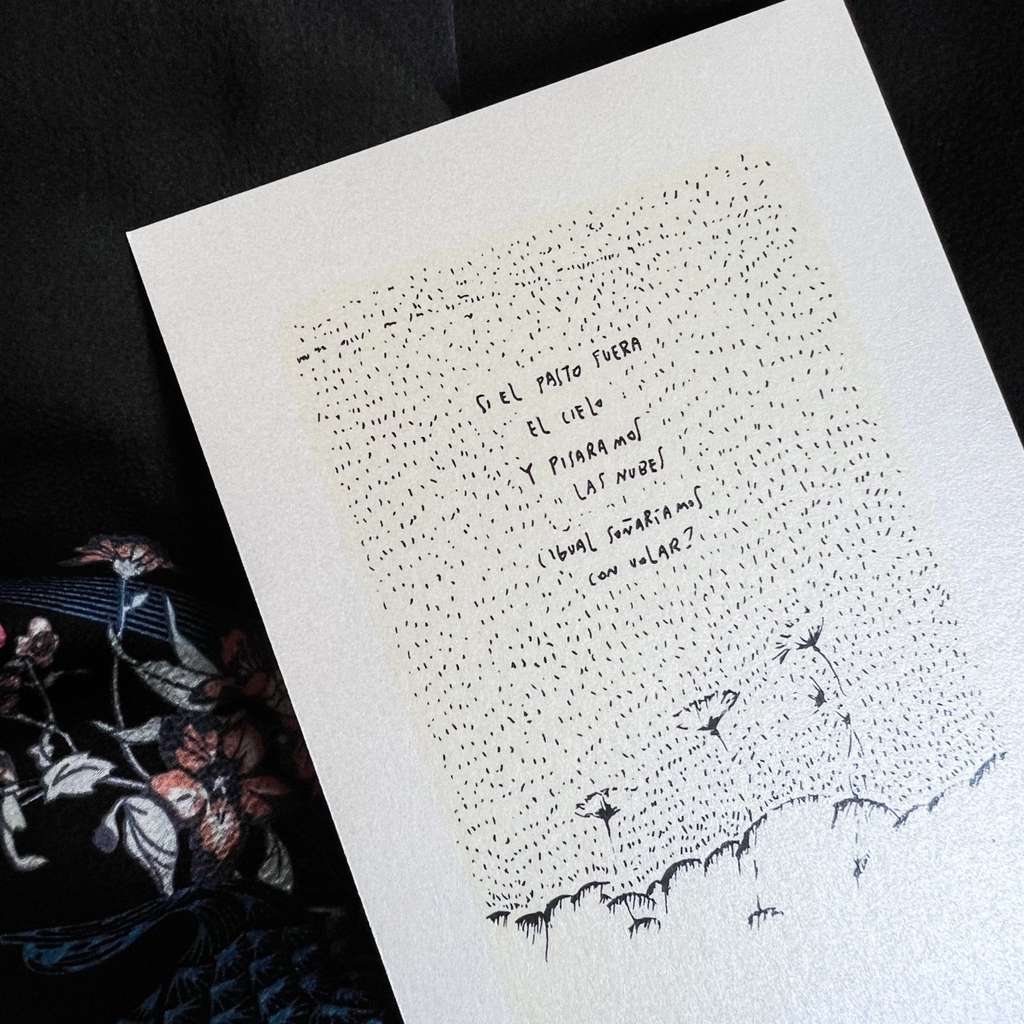 SI EL PASTO FUERA
EL CIELO
Y PISARAMOS
LAS NUBES
¿IGUAL SOÑARÍAMOS
CON VOLAR?